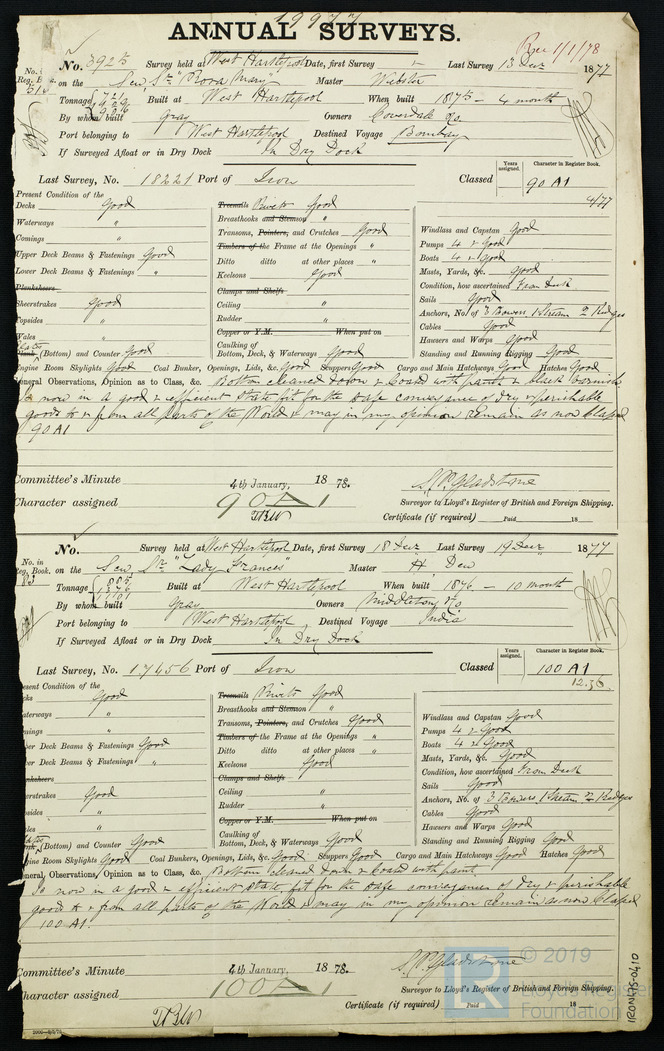 19977
ANNUAL SURVEYS.
Rec 1/1/78
No. 3925 Survey held at West Hartlepool Date, first Survey Last Survey 13 Decr 1877
No. in
Reg. Book.
on the Scw Str "Rosa Mary" Master Webster
Tonnage Built at West Hartlepool When built 1875 - 4 month
By whom built Gray Owners Coverdale & Co.
Port belonging to West Hartlepool Destined Voyage Bombay
If Surveyed Afloat or in Dry Dock In Dry Dock
Last Survey, No. 18221 Port of Iron Classed
Years assigned.
Character in Register Book.
90 A1
4/77
Present Condition of the
Decks Good
Waterways "
Comings "
Upper Deck Beams & Fastenings Good
Lower Deck Beams & Fastenings "
Planksheers
Sheerstrakes Good
Topsides "
Wales "
Plank (Bottom) and Counter Good
Treenails Rivets Good
Breasthooks and Stemson "
Transons, Pointers, and Crutches Good
Timbers of the Frame at the Openings "
Ditto ditto at other places "
Keelsons Good
Clamps and Shelfs
Ceiling "
Rudder "
Copper or Y.M. When put on
Caulking of
Bottom, Deck, & Waterways Good
Windlass and Capstan Good
Pumps 4 & Good
Boats 4 & Good
Masts, Yards, &c. Good
Condition, how ascertained From Deck
Sails Good
Anchors, No. of 3 Bowers 1 Stream 2 Kedges
Cables Good
Hawsers and Warps Good
Standing and Running Rigging Good
Engine Room Skylights Good Coal Bunker, Openings, Lids, &c. Good Scuppers Good Cargo and Main Hatchways Good Hatches Good
General Observations, Opinion as to Class, &c. Bottom cleaned down & Coated with paint & black varnish
Is now in a good & efficient state, fit for the safe conveyance of dry & perishable
goods &c & from all parts of the World & may in my opinion remain as now Classed
90 A1
Committee's Minute 4th January, 1878.
Character assigned 90 A 1
S. P. Gladstone
Surveyor to Lloyd's Register of British and Foreign Shipping.
Certificate (if required) Paid 18
No. Survey held at West Hartlepool Date, first Survey 18 Decr Last Survey 19 Decr 1877
No. in
Reg. Book.
83
on the Scw Str "Lady Frances" Master H Dew
Tonnage Built at West Hartlepool When built 1876 - 10 month
By whom built Gray Owners Middleton & Co
Port belonging to West Hartlepool Destined Voyage India
If Surveyed Afloat or in Dry Dock In Dry Dock
Last Survey, No. 17456 Port of Iron Classed
Years assigned.
Character in Register Book.
100 A1
12.76
Present Condition of the
Decks Good
Waterways "
Comings "
Upper Deck Beams & Fastenings Good
Lower Deck Beams & Fastenings "
Planksheers
Sheerstrakes Good
Topsides "
Wales "
Plank (Bottom) and Counter Good
Treenails Rivets Good
Breasthooks and Stemson "
Transons, Pointers, and Crutches Good
Timbers of the Frame at the Openings "
Ditto ditto at other places "
Keelsons Good
Clamps and Shelfs
Ceiling "
Rudder "
Copper or Y.M. When put on
Caulking of
Bottom, Deck, & Waterways Good
Windlass and Capstan Good
Pumps 4 & Good
Boats 4 & Good
Masts, Yards, &c. Good
Condition, how ascertained From Deck
Sails Good
Anchors, No. of 3 Bowers 1 Stream 2 Kedges
Cables Good
Hawsers and Warps Good
Standing and Running Rigging Good
Engine Room Skylights Good Coal Bunkers, Openings, Lids, &c. Good Scuppers Good Cargo and Main Hatchways Good Hatches Good
General Observations, Opinion as to Class, &c. Bottom cleaned down & Coated with paint
Is now in a good & efficient state, fit for the safe conveyance of dry & perishable
goods &c & from all parts of the World & may in my opinion remain as now Classed
100 A1.
Committee's Minute 4th January, 1878.
Character assigned 100 A 1
S. P. Gladstone
Surveyor to Lloyd's Register of British and Foreign Shipping.
Certificate (if required) Paid 18
© 2019
Lloyd's Register
Foundation
IRON75-0410